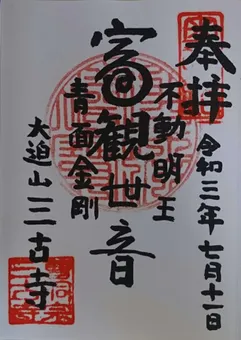 奉拝
令和三年七月十一日
不動明王
富観世音
青面金剛
大迫山三古寺